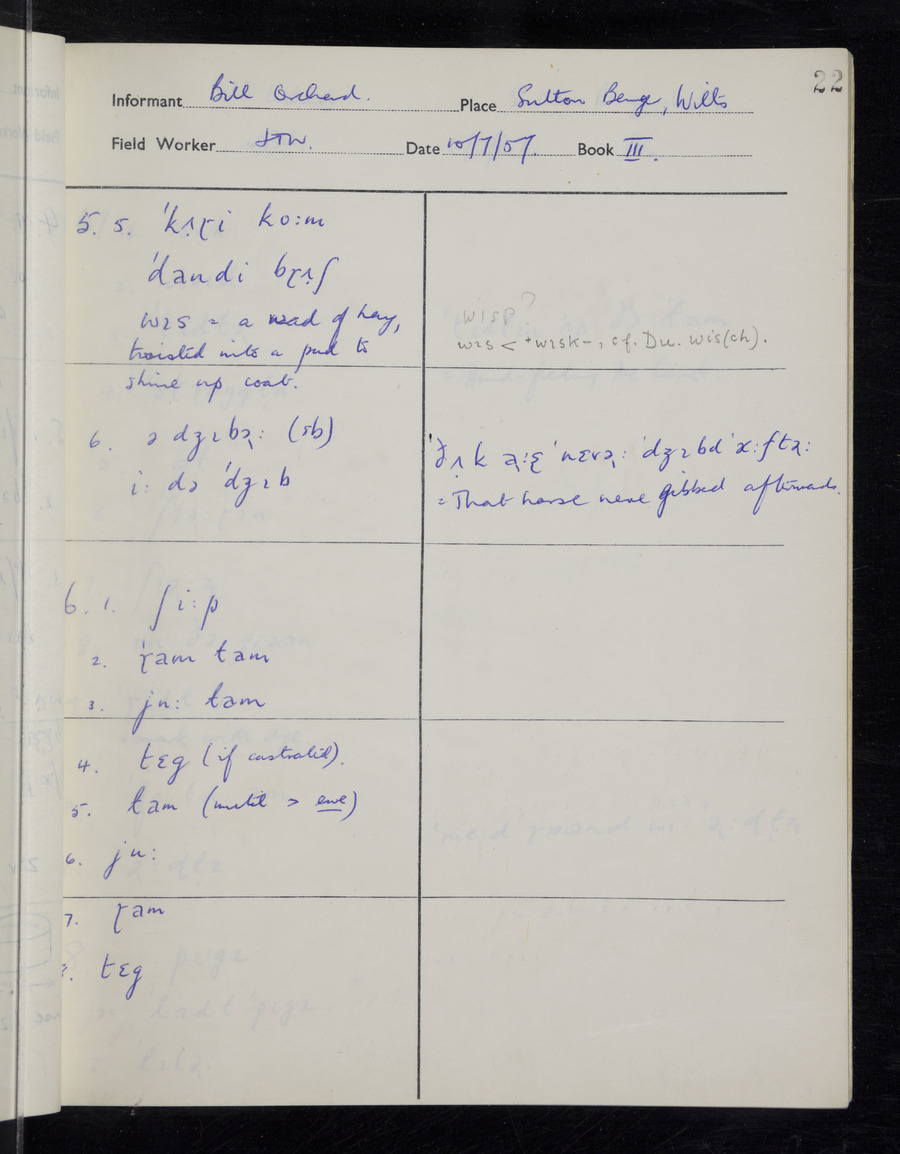 22
Informant Bill Orchard. Place Sutton Benger, Wilts
Field Worker JTW. Date 10/7/57. Book III.
5. 5. ˈkʌɽi ko:m
ˈdandi bɽʌʃ
wɪs = a wad of hay,
twisted into a pad to
shine up coat.
wɪsp?
wɪs < +wɪsk-, cf. Du. wis(ch).
6. ə dʒɪbə: (sb)
i: də ˈdʒɪb
= That horse never gibbed afterwards.
6. 1. ʃi:p
2. ɽam tam
3. ju: tam
4. tɛg (if castrated).
5. tam (until > ewe)
6. ju:
7. ɽam
8. tɛg